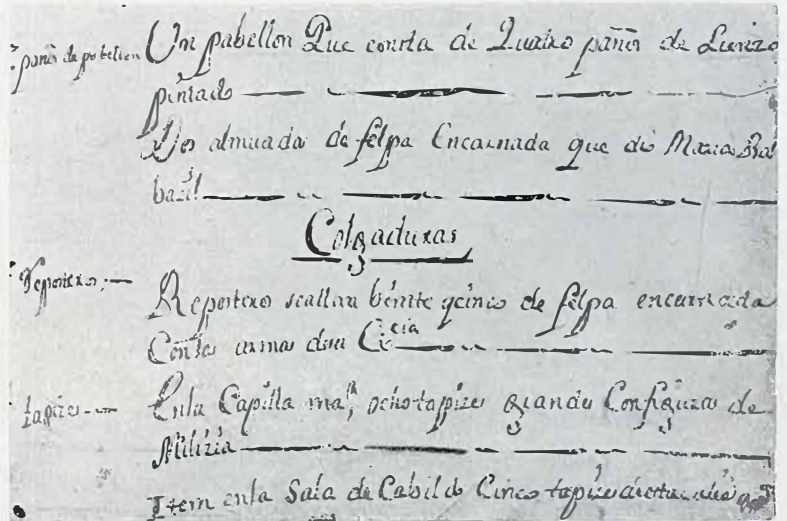 paños de pabellon
Un pabellon Que consta de Quatro paños de Lienzo
pintado
Dos almuada de felpa Encarnada que dio Maria Bra
bazil
Colgaduras
Reposteros
Reposteros seallan beinte ycinco de felpa encarnada
Conlas armas desu Cia
tapizes
Enla Capilla maor, ocho tappizes grandes Configuras de
Milizia
Item enla Sala de Cabildo Cinco tapizes